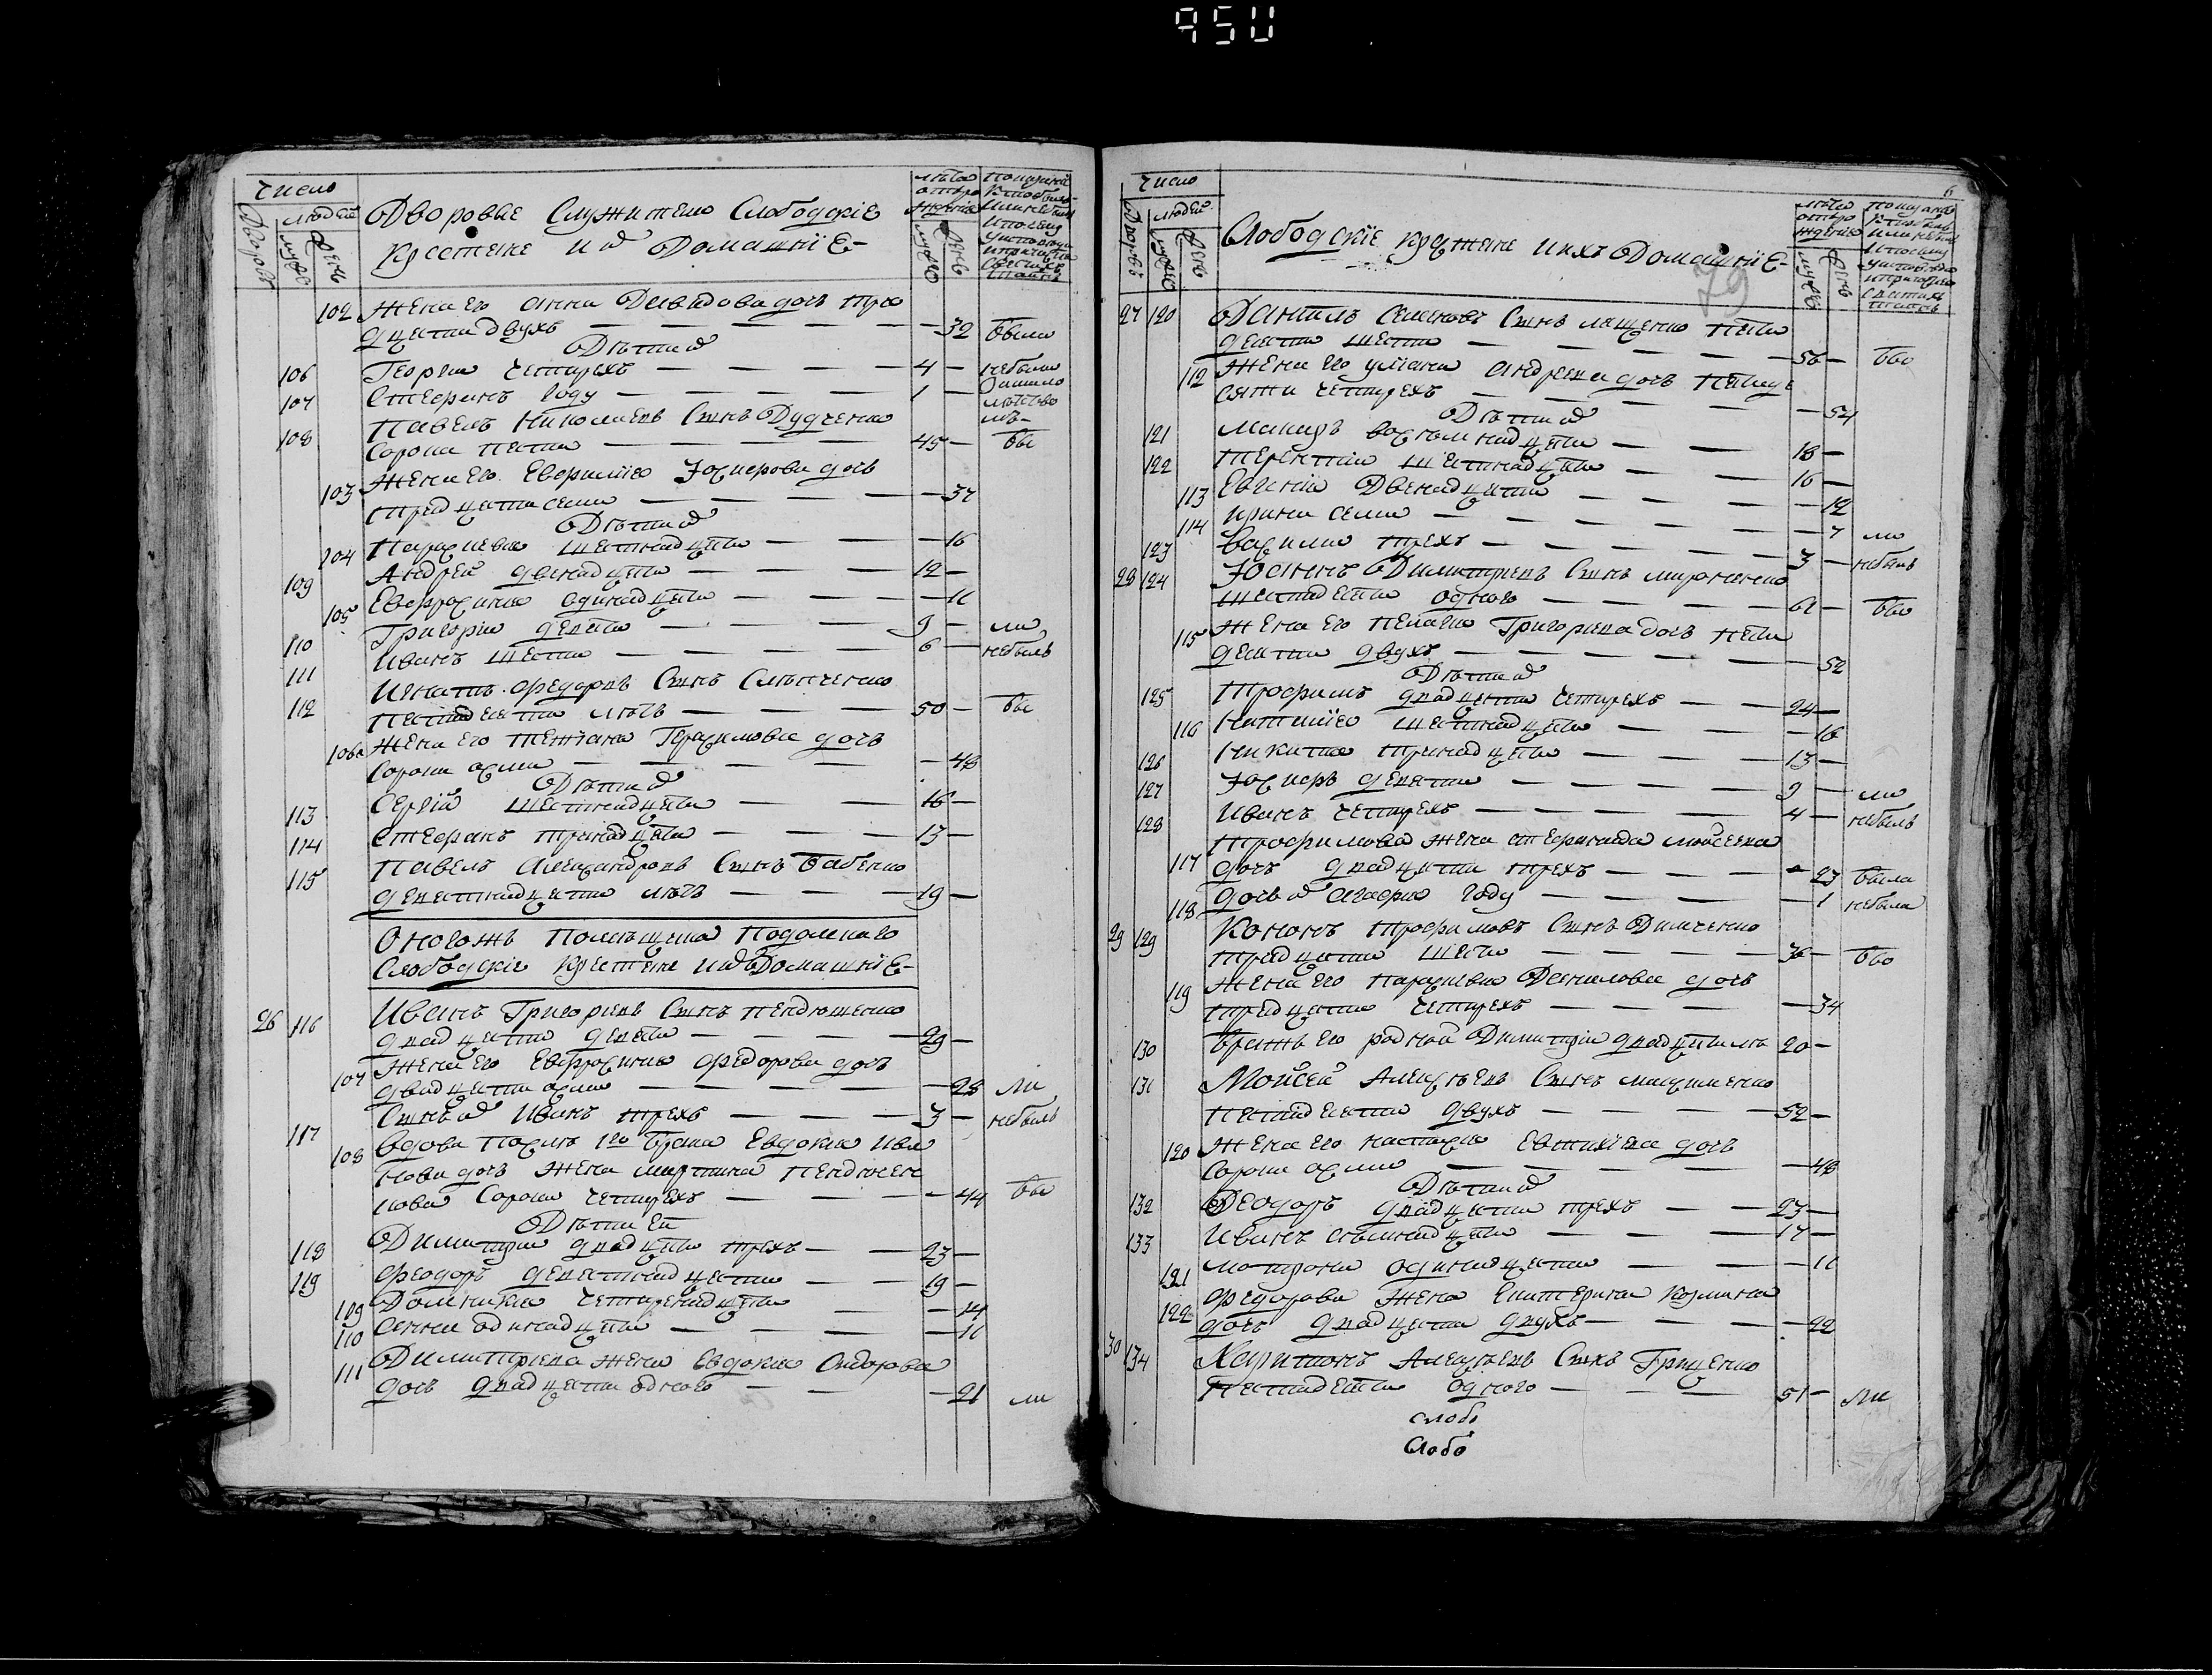 950
Число
Дворовъ
людей
мужеск
женск
Дворовые Служители Слободскіе
Крестяне и ихъ Домашніе
лѣта
отъ ро
жденія
мужеск
женск
102 Жена его Анна Давидова дочь три
дцати двухъ — 32 были
Дѣти ихъ
106 Георгій четырехъ — 4 — небыли
107 Стефанъ году — 1 —
108 Павелъ Николаевъ Сынъ Дудченко
Сорока пяти — 45 — бы
103 Жена его Евфимія Іосифова дочь
тридцати семи — 37
Дѣти ихъ
104 Параскева шестнадцати — 16
109 Андрей двенадцати — 12 —
105 Евфросинія одинадцати — 11
110 Григорій девяти — 9 — ли
111 Иванъ шести — 6 — небыль
112 Игнатъ Федоровъ Сынъ
пятидесяти лѣтъ — 50 — бы
106 Жена его Татіана Герасимова дочь
Сорока осми — 48
Дѣти ихъ
113 Сергій шестнадцати — 16 —
114 Стефанъ тринадцати — 13 —
115 Павелъ Александровъ Сынъ Бабенко
девятнадцати лѣтъ — 19 —
Оногожъ помѣщика Подолскаго
Слободскіе Крестяне и ихъ Домашніе
26 116 Иванъ Григоріевъ Сынъ Пендюшенко
двадцати девяти — 29 —
107 Жена его Евфросинія Федорова дочь
двадцати осми — 28 ли
117 Сынъ ихъ Иванъ трехъ — 3 — небыль
108 Вдова послѣ 1го брака Евдокія Ива
нова дочь жена Мартина
Сорока четырехъ — 44 бы
Дѣти ея
118 Димитрій двадцати трехъ — 23 —
119 Феодоръ девятнадцати — 19 —
109 Домникія четыренадцати — 14
110 Анна одинадцати — 11
111 Димитріева жена Евдокія Сидорова
дочь двадцати одного — 21 ли
Число
Дворовъ
людей
мужеск
женск
Слободскіе Крестяне и ихъ Домашніе
79
6
лѣта
отъ ро
жденія
мужеск
женск
27 120 Даніилъ Семеновъ Сынъ Лащенко пяти
десяти шести — 56 — бы
112 Жена его Уліана Андреева дочь пятде
сяти четырехъ — 54
Дѣти ихъ
121 Макаръ восемнадцати — 18 —
122 Терентій шестнадцати — 16 —
113 Евгенія двенадцати — 12
114 Ирина семи — 7 ли
123 Василій трехъ — 3 — небыль
28 124 Іосифъ Димитріевъ Сынъ Мироненко
шестидесяти одного — 61 — бы
115 Жена его Пелагія Григоріева дочь пяти
десяти двухъ — 52
Дѣти ихъ
125 Трофимъ двадцати четырехъ — 24 —
116 Наталія шестнадцати — 16
126 Никита тринадцати — 13 —
127 Іосифъ девяти — 9 — ли
128 Иванъ четырехъ — 4 — небыль
117 Трофимова жена Стефанида Моисеева
дочь двадцати трехъ — 23 была
118 дочь ихъ Агафія году — 1 небыла
29 129 Кононъ Трофимовъ Сынъ Димченко
тридцати шести — 36 — бы
119 Жена его Параскева Данилова дочь
тридцати четырехъ — 34
130 Братъ его родной Димитрій двадцати лѣ 20 —
131 Мойсей Алексѣевъ Сынъ
пятидесяти двухъ — 52 —
120 Жена его Настасія Евтихіева дочь
Сорока осми — 48
Дѣти ихъ
132 Феодоръ двадцати трехъ — 23 —
133 Иванъ семнадцати — 17 —
121 Матрона одинадцати — 11
122 Федорова жена Екатерина Козмина
дочь двадцати двухъ — 22
30 134 Харитонъ Алексѣевъ Сынъ Грищенко
пятидесяти одного — 51 — ли
слобо
Слобо